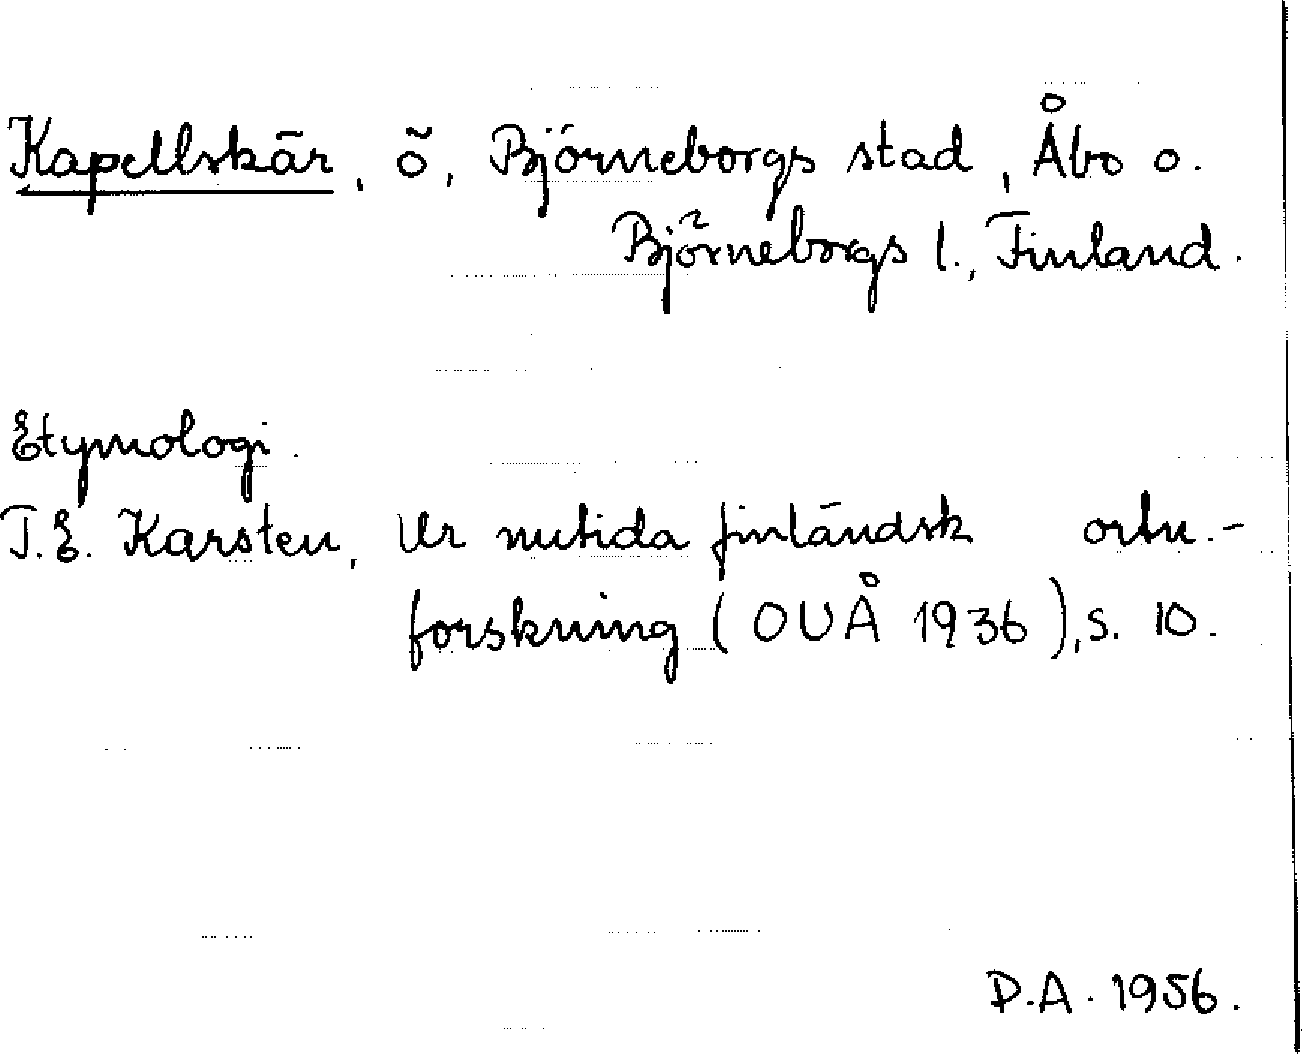 Kapellskär, ö, Björneborgs stad, Åbo o.
Björneborgs l., Finland.
Etymologi.
T.E. Karsten, Ur nutida finländsk ortn.-
forskning (OUÅ 1936), s. 10.
P.A. 1956.